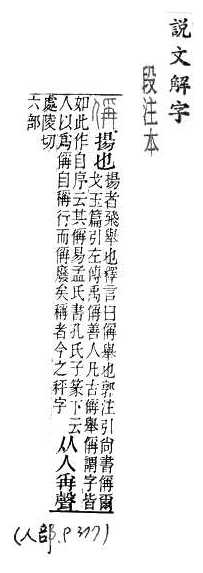 說文解字
段注本
偁 揚也
揚者飛舉也釋言曰偁舉也郭注引尚書偁爾
戈玉篇引左傳禹偁善人凡古偁舉偁謂字皆
如此作自序云其偁易孟氏書孔氏子篆下云
人以爲偁自稱行而偁廢矣稱者今之秤字
从人爯聲
處陵切
六部
(人部.P377)